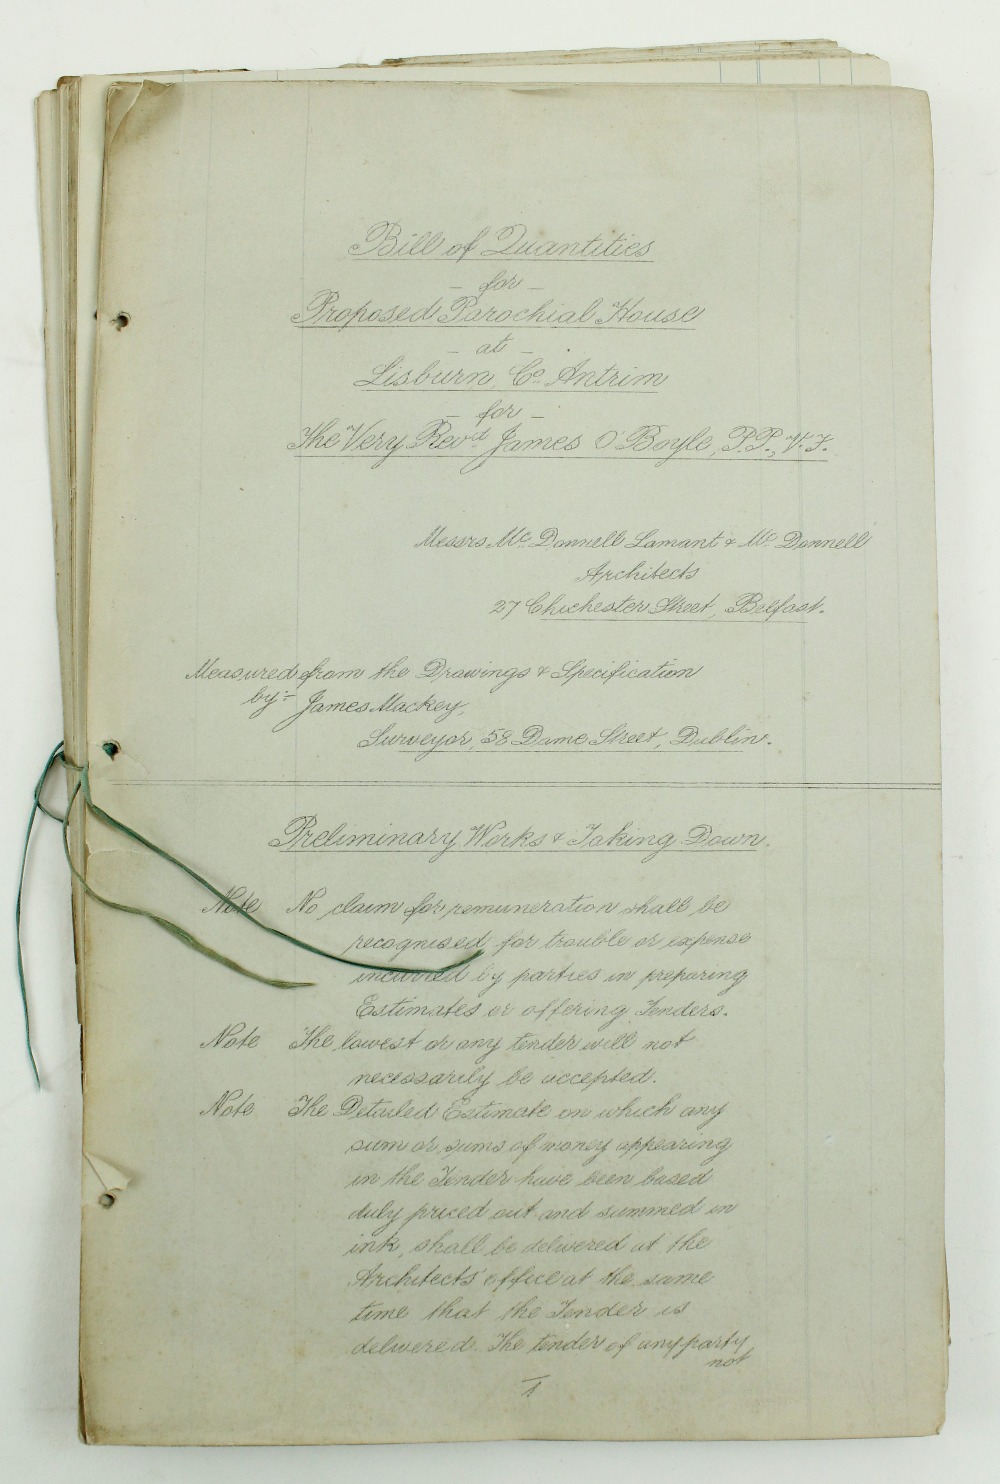 Bill of Quantities
– for –
Proposed Parochial House
– at –
Lisburn, Co. Antrim
– for –
The Very Revd. James O'Boyle, P.P., V.F.
Messrs. Mc. Donnell Lamont & Mc. Donnell
Architects
27 Chichester Street, Belfast.
Measured from the Drawings & Specification
by:- James Mackey,
Surveyor, 58 Dame Street, Dublin.
Preliminary Works & Taking Down.
Note No claim for remuneration shall be
recognised for trouble or expense
incurred by parties in preparing
Estimates or offering Tenders.
Note The lowest or any tender will not
necessarily be accepted.
Note The Detailed Estimate on which any
sum or sums of money appearing
in the Tender have been based
duly priced out and summed in
ink, shall be delivered at the
Architects' office at the same
time that the Tender is
delivered. The tender of any party
not
1